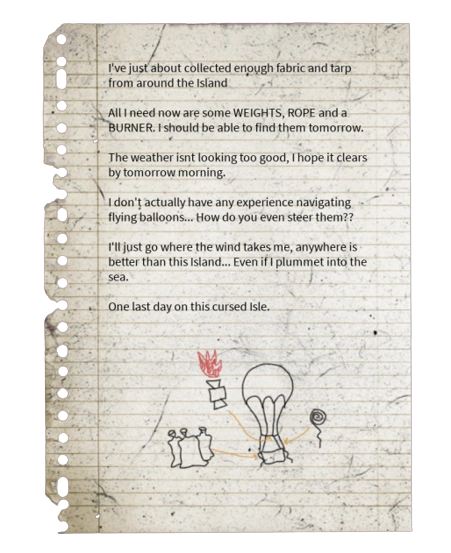 I've just about collected enough fabric and tarp
from around the Island
All I need now are some WEIGHTS, ROPE and a
BURNER. I should be able to find them tomorrow.
The weather isnt looking too good, I hope it clears
by tomorrow morning.
I don't actually have any experience navigating
flying balloons... How do you even steer them??
I'll just go where the wind takes me, anywhere is
better than this Island... Even if I plummet into the
sea.
One last day on this cursed Isle.